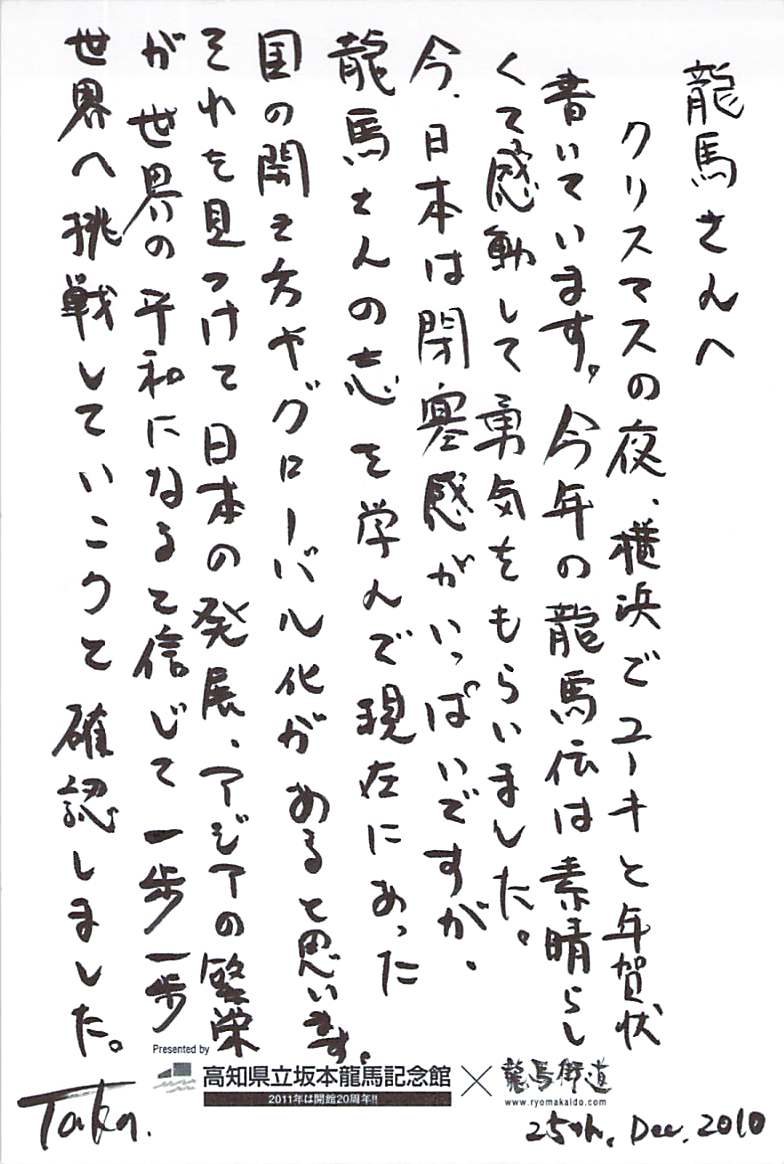 龍馬さんへ
クリスマスの夜、横浜でユーキと年賀状
書いています。今年の龍馬伝は素晴らし
くて感動して勇気をもらいました。
今、日本は閉塞感がいっぱいですが、
龍馬さんの志を学んで現在にあった
国の開き方やグローバル化があると思います。
それを見つけて日本の発展、アジアの繁栄
が世界の平和になると信じて一歩一歩
世界へ挑戦していこうと確認しました。
Presented by
高知県立坂本龍馬記念館 × 龍馬街道
2011年は開館20周年!!
www.ryomakaido.com
Taka.
25th, Dec, 2010